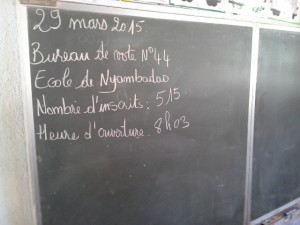 29 mars 2015
Bureau de vote N°44
Ecole de Nyambadao
Nombre d'inscrits : 515
Heure d'ouverture : 8h03